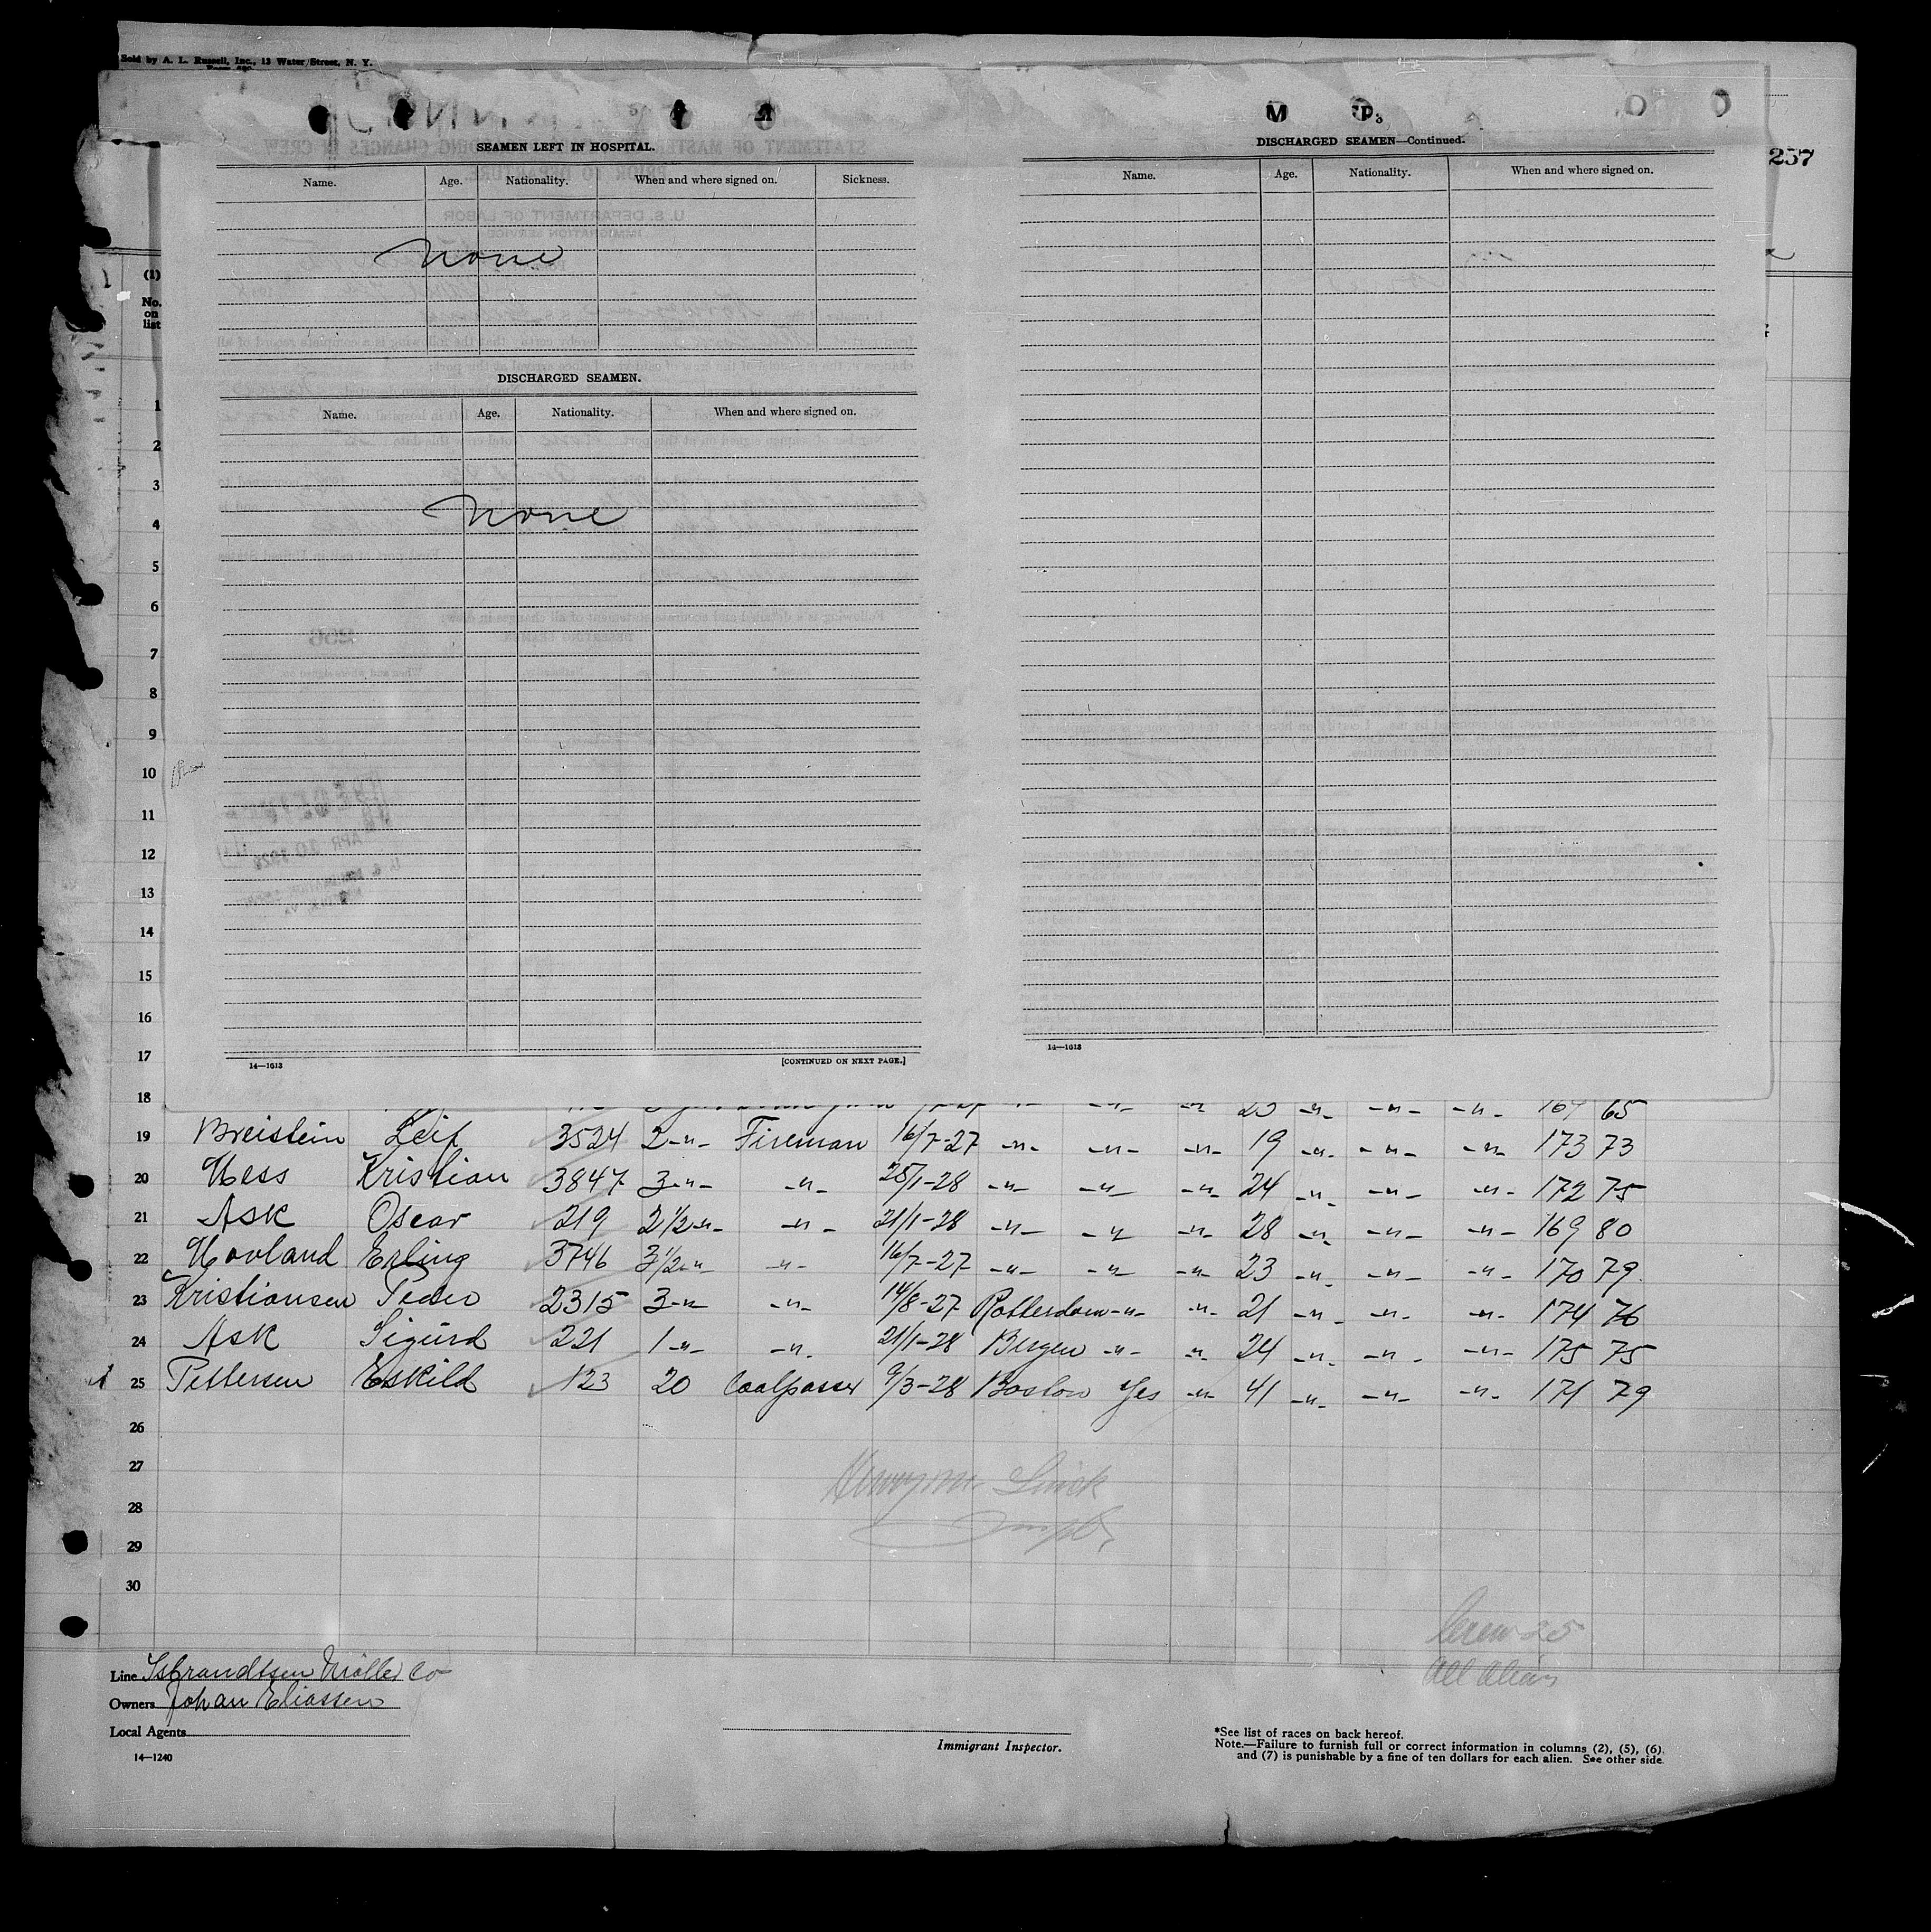 Sold by A. L. Russell, Inc., 13 Water Street, N. Y.
257
SEAMEN LEFT IN HOSPITAL.
Name. Age. Nationality. When and where signed on. Sickness.
None
DISCHARGED SEAMEN.
Name. Age. Nationality. When and where signed on.
None
14—1613 [CONTINUED ON NEXT PAGE.]
DISCHARGED SEAMEN—Continued.
Name. Age. Nationality. When and where signed on.
14—1613
(1)
No. on list
1
2
3
4
5
6
7
8
9
10
11
12
13
14
15
16
17
18 23 -"- -"- -"- 65
19 Breistein Leif 3524 2 -"- Fireman 16/7-27 -"- -"- -"- 19 -"- -"- -"- 173 73
20 Hess Kristian 3847 3 -"- -"- 25/1-28 -"- -"- -"- 24 -"- -"- -"- 172 75
21 Ask Oscar 219 2 1/2 -"- -"- 21/1-28 -"- -"- -"- 28 -"- -"- -"- 169 80
22 Hovland Erling 3746 3 1/2 -"- -"- 16/7-27 -"- -"- -"- 23 -"- -"- -"- 170 79
23 Kristiansen Peder 2315 3 -"- -"- 14/8-27 Rotterdam -"- -"- 21 -"- -"- -"- 174 76
24 Ask Sigurd 221 1 -"- -"- 21/1-28 Bergen -"- -"- 24 -"- -"- -"- 175 75
25 Pettersen Eskild 123 20 Coalpasser 9/3-28 Boston Yes -"- 41 -"- -"- -"- 171 79
26
27
28
29
30
Crew 25
All Aliens
Line Isbrandtsen Möller Co
Owners Johan Eliassen
Local Agents
14—1240
Immigrant Inspector.
*See list of races on back hereof.
Note.—Failure to furnish full or correct information in columns (2), (5), (6),
and (7) is punishable by a fine of ten dollars for each alien. See other side.